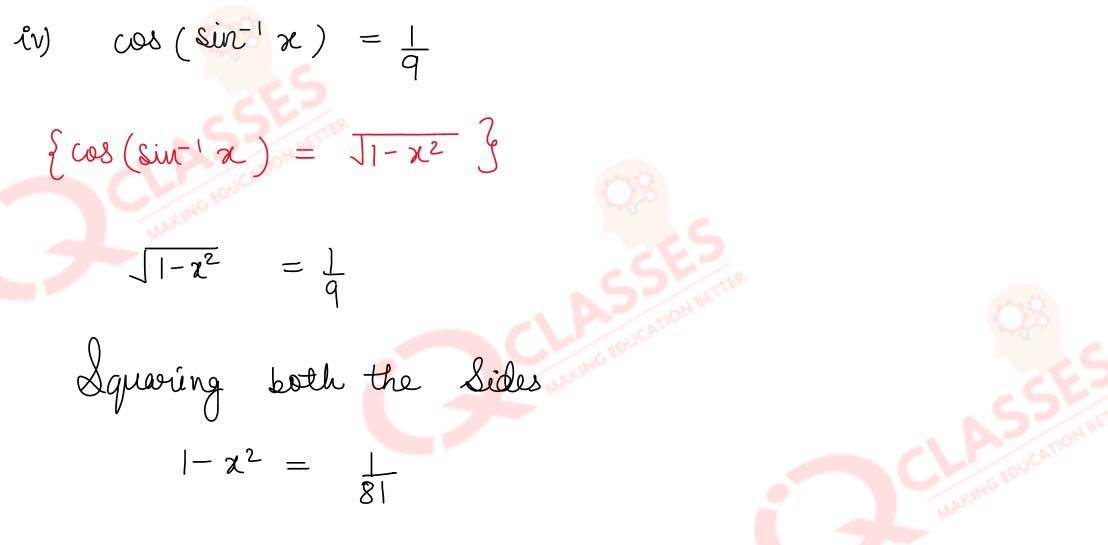 iv) cos (sin⁻¹ x) = 1/9
{cos (sin⁻¹ x) = √(1-x²)}
√(1-x²) = 1/9
Squaring both the Sides
1-x² = 1/81
CLASSES
MAKING EDUCATION BETTER
CLASSES
MAKING EDUCATION BETTER
CLASSES
MAKING EDUCATION BE